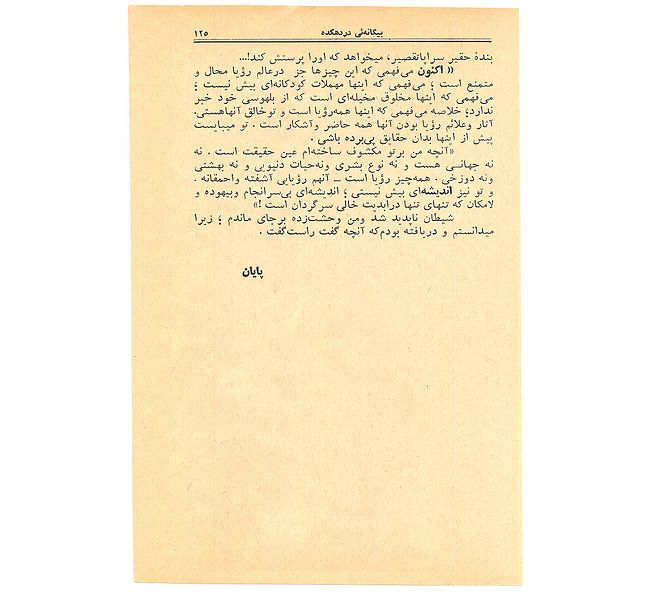 بیگانه‌ئی در دهکده ۱۲۵
بندهٔ حقیر سراپاتقصیر، میخواهد که اورا پرستش کند!...
« اکنون می‌فهمی که این چیزها جز درعالم رؤیا محال و
متمنع است ؛ می‌فهمی که اینها مهملات کودکانه‌ای بیش نیست ؛
می‌فهمی که اینها مخلوق مخیله‌ای است که از بلهوسی خود خبر
ندارد؛ خلاصه می‌فهمی که اینها همه‌رؤیا است و توخالق آنهاهستی.
آثار وعلائم رؤیا بودن آنها همه حاضر وآشکار است . تو میبایست
پیش از اینها بدان حقایق پی‌برده باشی .
«آنچه من برتو مکشوف ساخته‌ام عین حقیقت است . نه
نه جهانی هست و نه نوع بشری ونه‌حیات دنیوایی و نه بهشتی
ونه دوزخی . همه‌چیز رؤیا است ــ آنهم رؤیایی آشفته واحمقانه .
و تو نیز اندیشه‌ای بیش نیستی ؛ اندیشه‌ای بی‌سرانجام وبیهوده و
لامکان که تنهای تنها درابدیت خالی سرگردان است !»
شیطان ناپدید شد ومن وحشت‌زده برجای ماندم ؛ زیرا
میدانستم و دریافته بودم‌که آنچه گفت راست‌گفت .
پایان